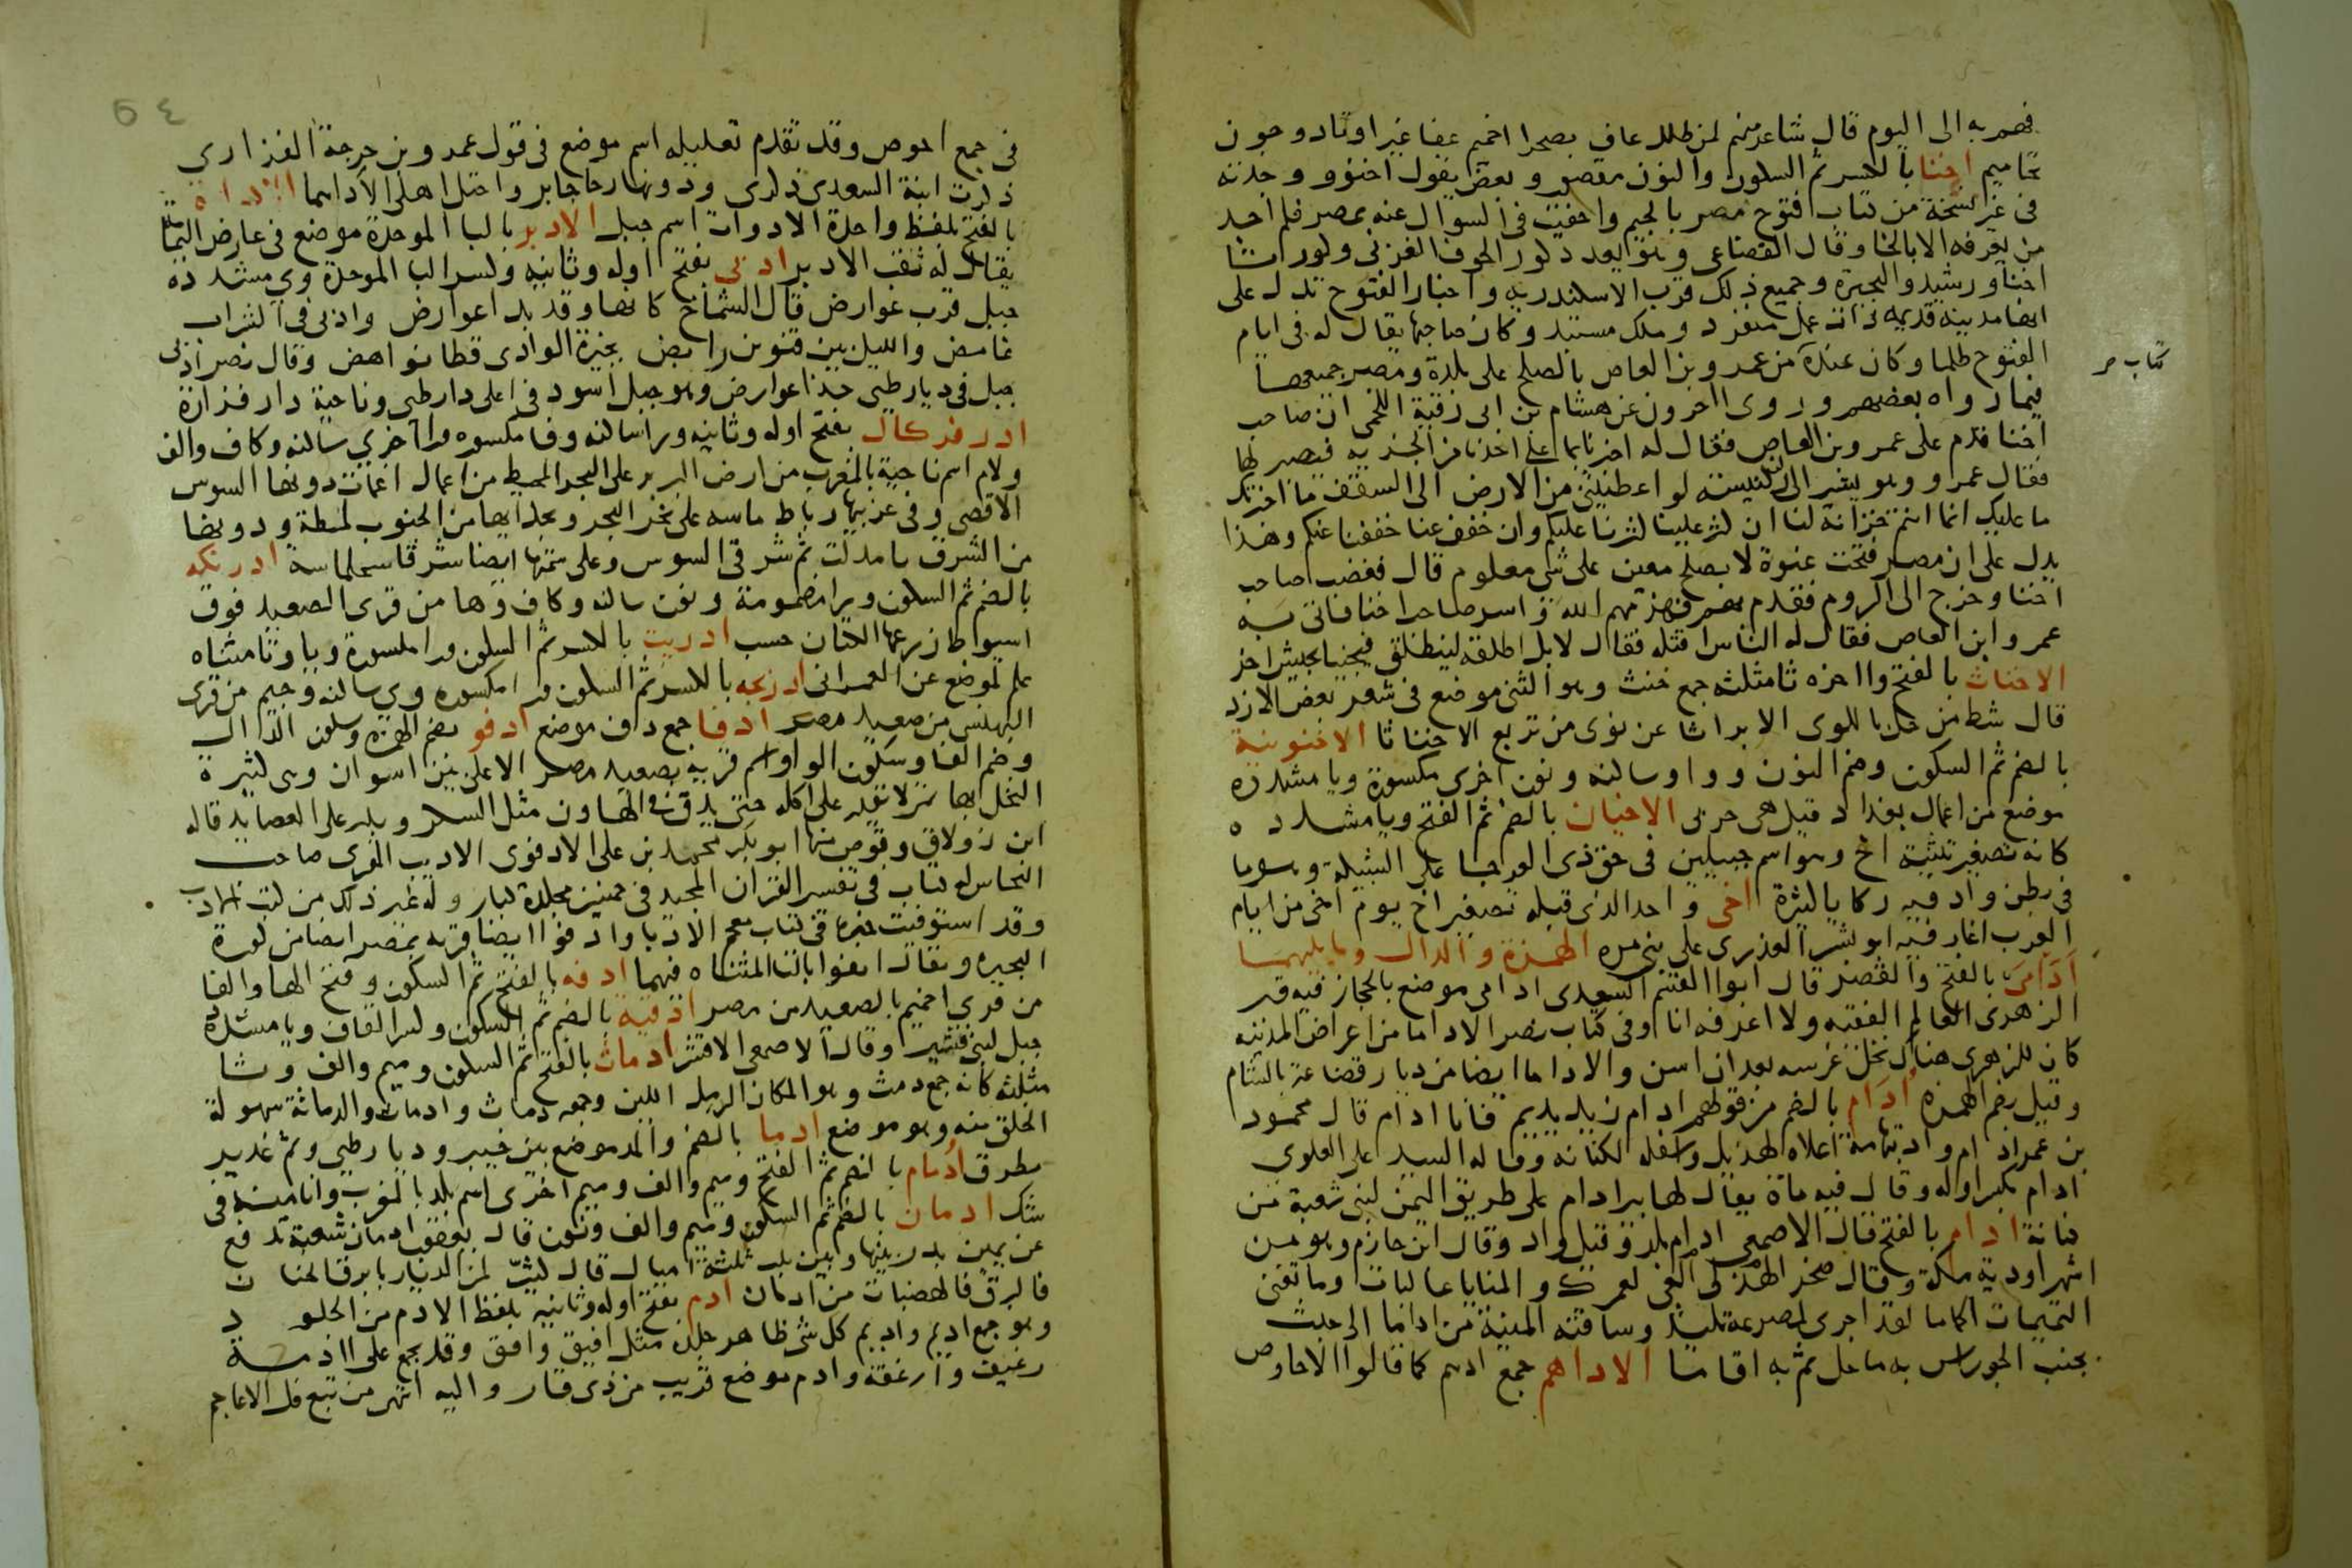 فهم به الى اليوم قال شاعر منهم لمن طلل عاف بصحرا اخميم عفا غير اوتاد وجون
يحاميم اخنا بالكسر ثم السكون والنون مقصور وبعض يقول اخنوو وجدته
فى غير نسخة من كتاب فتوح مصر بالجيم واحفيت فى السوال عنه بمصر فلم اجد
من يعرفه الا بالخا وقال القضاعى وهو يعدد كور الحوف الغربى وكورتا
اخنا ورشيد والبحيرة وجميع ذلك قرب الاسكندرية واخبار الفتوح تدل على
انها مدينة قديمه ذات عمل منفرد وملك مستبد وكان صاحبها يقال له فى ايام
الفتوح طلما وكان عنده من عمرو بن العاص بالصلح على بلده ومصر جميعها
كتاب صر
فيما رواه بعضهم وروى الاخرون عن هشام بن ابى رقية اللخمى ان صاحب
اخنا قدم على عمرو بن العاص فقال له اخبرنا بما على احدنا من الجزية فيصير لها
فقال عمرو وهو يشير الى كنيسته لو اعطيتنى من الارض الى السقف ما اخبرتك
ما عليك انما انتم خزانة لنا ان كثر علينا كثرنا عليكم وان خفف عنا خففنا عنكم وهذا
يدل على ان مصر فتحت عنوة لا بصلح معين على شى معلوم قال فغضب صاحب
اخنا وخرج الى الروم فقدم بهم فهزمهم الله و اسر صاحب اخنا فاتى به
عمرو ابن العاص فقال له الناس اقتله فقال لا بل اطلقه لينطلق فيجينا بجيش اخر
الاخناث بالفتح واخره ثا مثلثه جمع خنث وهو التثنى موضع فى شعر بعض الازد
قال شط من حل باللوى الابراثا عن نوى من تربع الاخناثا الاخنونية
بالضم ثم السكون وضم النون وواو ساكنه ونون اخرى مكسورة ويا مشدده
موضع من اعمال بغداد قيل هى حربى الاخيان بالضم ثم الفتح ويا مشدده
كانه تصغير تثنية اخ وهو اسم جبلين فى حق ذى العرجا على الشبيكة وهو ما
فى بطن واد فيه ركايا كثيرة اخى واحد الذى قبله تصغير اخ يوم اخى من ايام
العرب اغار فيه ابو بشر العذرى على بنى مره الهمزة والدال وما يليهما
اَدَامَى بالفتح والقصر قال ابوا القسم السعدى ادامى موضع بالحجاز فيه قبر
الزهرى العالم الفقيه ولا اعرفه انا وفى كتاب نصر الاداما من اعراض المدينه
كان للزهرى هناك نخل غرسه بعد ان اسن والاداما ايضا من ديار قضاعة بالشام
وقيل بضم الهمزه اُدَام بالضم من قولهم ادام زيد يديم فانا ادام قال محمود
بن عمر ادام واد بتهامة اعلاه لهذيل واسفله لكنانه وقاله السيد على العلوى
ادام بكسر اوله وقال فيه ماة يقال لها بير ادام على طريق اليمن لبنى شعبة من
كنانة ادام بالفتح قال الاصمعى ادام بلد وقيل واد وقال ابن حازم وهو من
اشهر اودية مكة وقال صخر الهذلى الغى لعمرك والمنايا غالبات وما تغنى
التميمات الحماما لقد اجرى لمصرعه تليد وساقته المنية من اداما الى جدث
بجنب الجوراس به ما حل ثم به اقاما الاداهم جمع ادهم كما قالوا الاحاوص
٥٤
فى جمع احوص وقد تقدم تعليله اسم موضع فى قول عمرو بن خرجة الفزارى
ذكرت ابنة السعدى ذكرى ودونها رحا جابر واحتل اهلى الاداهما الاداة
بالفتح بلفظ واحدة الادوات اسم جبل الادبر بالبا الموحدة موضع فى عارض اليمامة
يقال له ثقب الادبر ادبى بفتح اوله وثانيه وكسر البا الموحدة وى مشدده
جبل قرب عوارض قال الشماخ كانها وقد بدا عوارض وادبى فى السراب
غامض والليل بين قنوين رابض بجيزة الوادى قطا نواهض وقال نصر ادبى
جبل فى ديار طى حذا عوارض وهو جبل اسود فى اعلى دار طى وناحية دار فزارة
ادرفركال بفتح اوله وثانيه ورا ساكنه وفا مكسوره ورا اخرى ساكنه وكاف والف
ولام اسم ناحية بالمغرب من ارض البربر على البحر المحيط من اعمال اغمات دونها السوس
الاقصى وفى غربيها رباط ماسه على نحر البحر وبحذايها من الجنوب لمطة ودونها
من الشرق تامدلت ثم شرقى السوس وعلى سمتها ايضا شرقا سجلماسة ادرنكه
بالضم ثم السكون ورا مضمومة ونون ساكنه وكاف وها من قرى الصعيد فوق
اسيوط زرعها الكتان حسب ادريت بالكسر ثم السكون ورا مكسورة ويا وتا مثناه
علم لموضع عن العمرانى ادريجه بالكسر ثم السكون ورا مكسوره وى ساكنه وجيم من قرى
البهنسى من صعيد مصر ادفا جمع دف موضع ادفو بضم الهمزه وسكون الدال
وضم الفا وسكون الواو اسم قريه بصعيد مصر الاعلى بين اسوان وهى كثيرة
النخل بها تمر لا يقدر على اكله حتى يدق فى الهاون مثل السكر ويدر على العصايد قاله
ابن زولاق وقوص منها ابو بكر محمد بن على الادفوى الاديب المقرى صاحب
النحاس له كتاب فى تفسير القران المجيد فى خمسين مجلدة كبار وله غير ذلك من كتب الادب
وقد استوفيت خبره فى كتاب معجم الادبا وادفوا ايضا قريه بمصر ايضا من كورة
البحيره ويقال اتفوا بالتا المثناه فيهما ادفه بالفتح ثم السكون وفتح الها والفا
من قرى اخميم بالصعيد من مصر ادقية بالضم ثم السكون وكسر القاف ويا مشدده
جبل لبنى قشير وقال الاصمعى الاقشر ادماث بالفتح ثم السكون وميم والف وثا
مثلثه كانه جمع دمث وهو المكان الرمل اللين وجمعه دماث وادماث والدماثة سهولة
الخلق منه وهو موضع ادما بالضم والمد موضع بين خيبر وديار طى وثم غدير
مطرق اُدمام بالضم ثم الفتح وميم والف وميم اخرى اسم بلد بالمغرب وانا منه فى
شك ادمان بالضم ثم السكون وميم والف ونون قال يعقوب ادمان شعبة تدفع
عن يمين بدر بينها وبين بدر ثلثة اميال قال كثير لمن الديار بابرق الحنان
فالبرق فالهضبات من ادمان ادم بفتح اوله وثانيه بلفظ الادم من الجلود
وهو جمع اديم واديم كل شى ظاهر جلده مثل افيق وافق وقد يجمع على اادمة
رغيف وارغفه وادم موضع قريب من ذى قار واليه انتهى من تبع فل الاعاجم